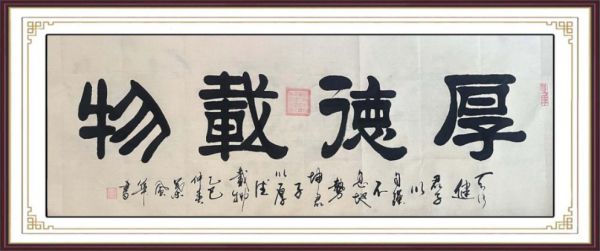 厚德載物
天行健君子以自强不息地勢坤君子以厚德載物乙巳仲春風年書